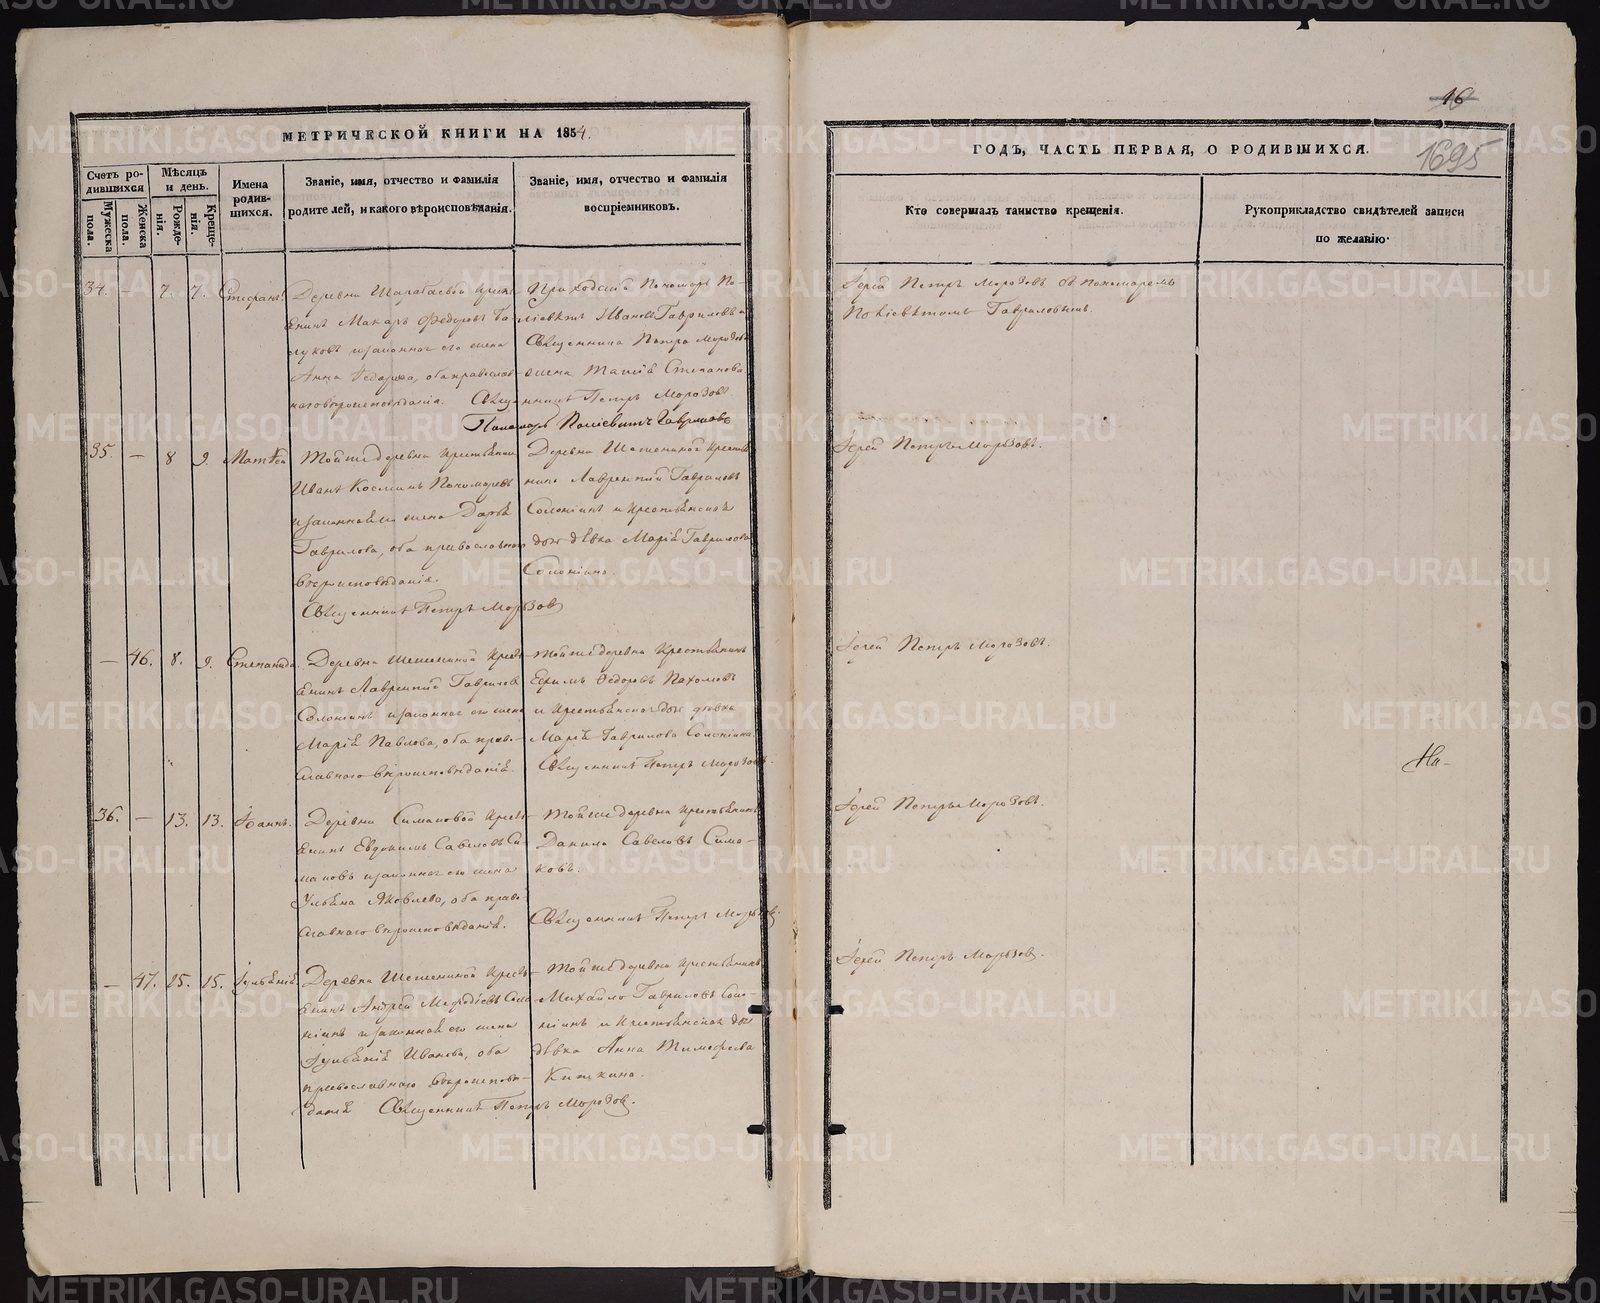 МЕТРИЧЕСКОЙ КНИГИ НА 1854.
Счетъ родившихся
Мѣсяцъ и день.
Имена родившихся.
Званіе, имя, отчество и фамилія
родителей, и какого вѣроисповѣданія.
Званіе, имя, отчество и фамилія
воспріемниковъ.
Мужеска пола.
Женска пола.
Рожденія.
Крещенія.
34. 7. 7. Стефанъ
Деревни
Макаръ Федоровъ
законная его жена
Анна Федорова, оба православ-
наго вѣроисповѣданія.
Приходскій Пономарь По-
ліевктъ Ивановъ Гавриловъ и
Священника Петра Морозова
жена Степанова
Священникъ Петръ Морозовъ
Пономарь Поліевктъ Гавриловъ
35. — 8 9. Матѳей
Той же деревни крестьянинъ
Иванъ Косминъ Пономаревъ
и законная его жена Дарья
Гаврилова, оба православнаго
вѣроисповѣданія.
Деревни Шешениной крестья-
нинъ Лаврентій Гавриловъ
Солонинъ и крестьянская
дочь дѣвка Марія Гаврилова
Солонина.
Священникъ Петръ Морозовъ
— 46. 8. 9. Степанида.
Деревни Шешениной крестья-
янинъ Лаврентій Гавриловъ
Солонинъ и законная его жена
Марія Павлова, оба право-
славнаго вѣроисповѣданія.
Той же деревни крестьянинъ
Ефимъ Федоровъ Пахомовъ
и крестьянская дочь дѣвка
Марія Гаврилова Солонина.
Священникъ Петръ Морозовъ.
36. — 13. 13. Іоаннъ.
Деревни Симановой крестья-
янинъ Евдокимъ Савеловъ Си-
мановъ и законная его жена
Ульяна Яковлева, оба право-
славнаго вѣроисповѣданія.
Той же деревни крестьянинъ
Данило Савеловъ Сима-
новъ.
Священникъ Петръ Морозовъ.
— 47. 15. 15. Іуліанія.
Деревни Шешениной крестья-
янинъ Андрей Меѳодіевъ Соло-
нинъ и законная его жена
Іуліанія Иванова, оба
православнаго вѣроисповѣ-
данія
Той же деревни крестьянинъ
Михайло Гавриловъ Соло-
нинъ и крестьянская дочь
дѣвка Анна Тимофеева
Священникъ Петръ Морозовъ.
16
1695
ГОДЪ, ЧАСТЬ ПЕРВАЯ, О РОДИВШИХСЯ.
Кто совершалъ таинство крещенія.
Рукоприкладство свидѣтелей записи
по желанію.
Іерей Петръ Морозовъ съ пономаремъ
Поліевктомъ Гавриловымъ.
Іерей Петръ Морозовъ.
Іерей Петръ Морозовъ.
На-
Іерей Петръ Морозовъ.
Іерей Петръ Морозовъ.
METRIKI.GASO-URAL.RU